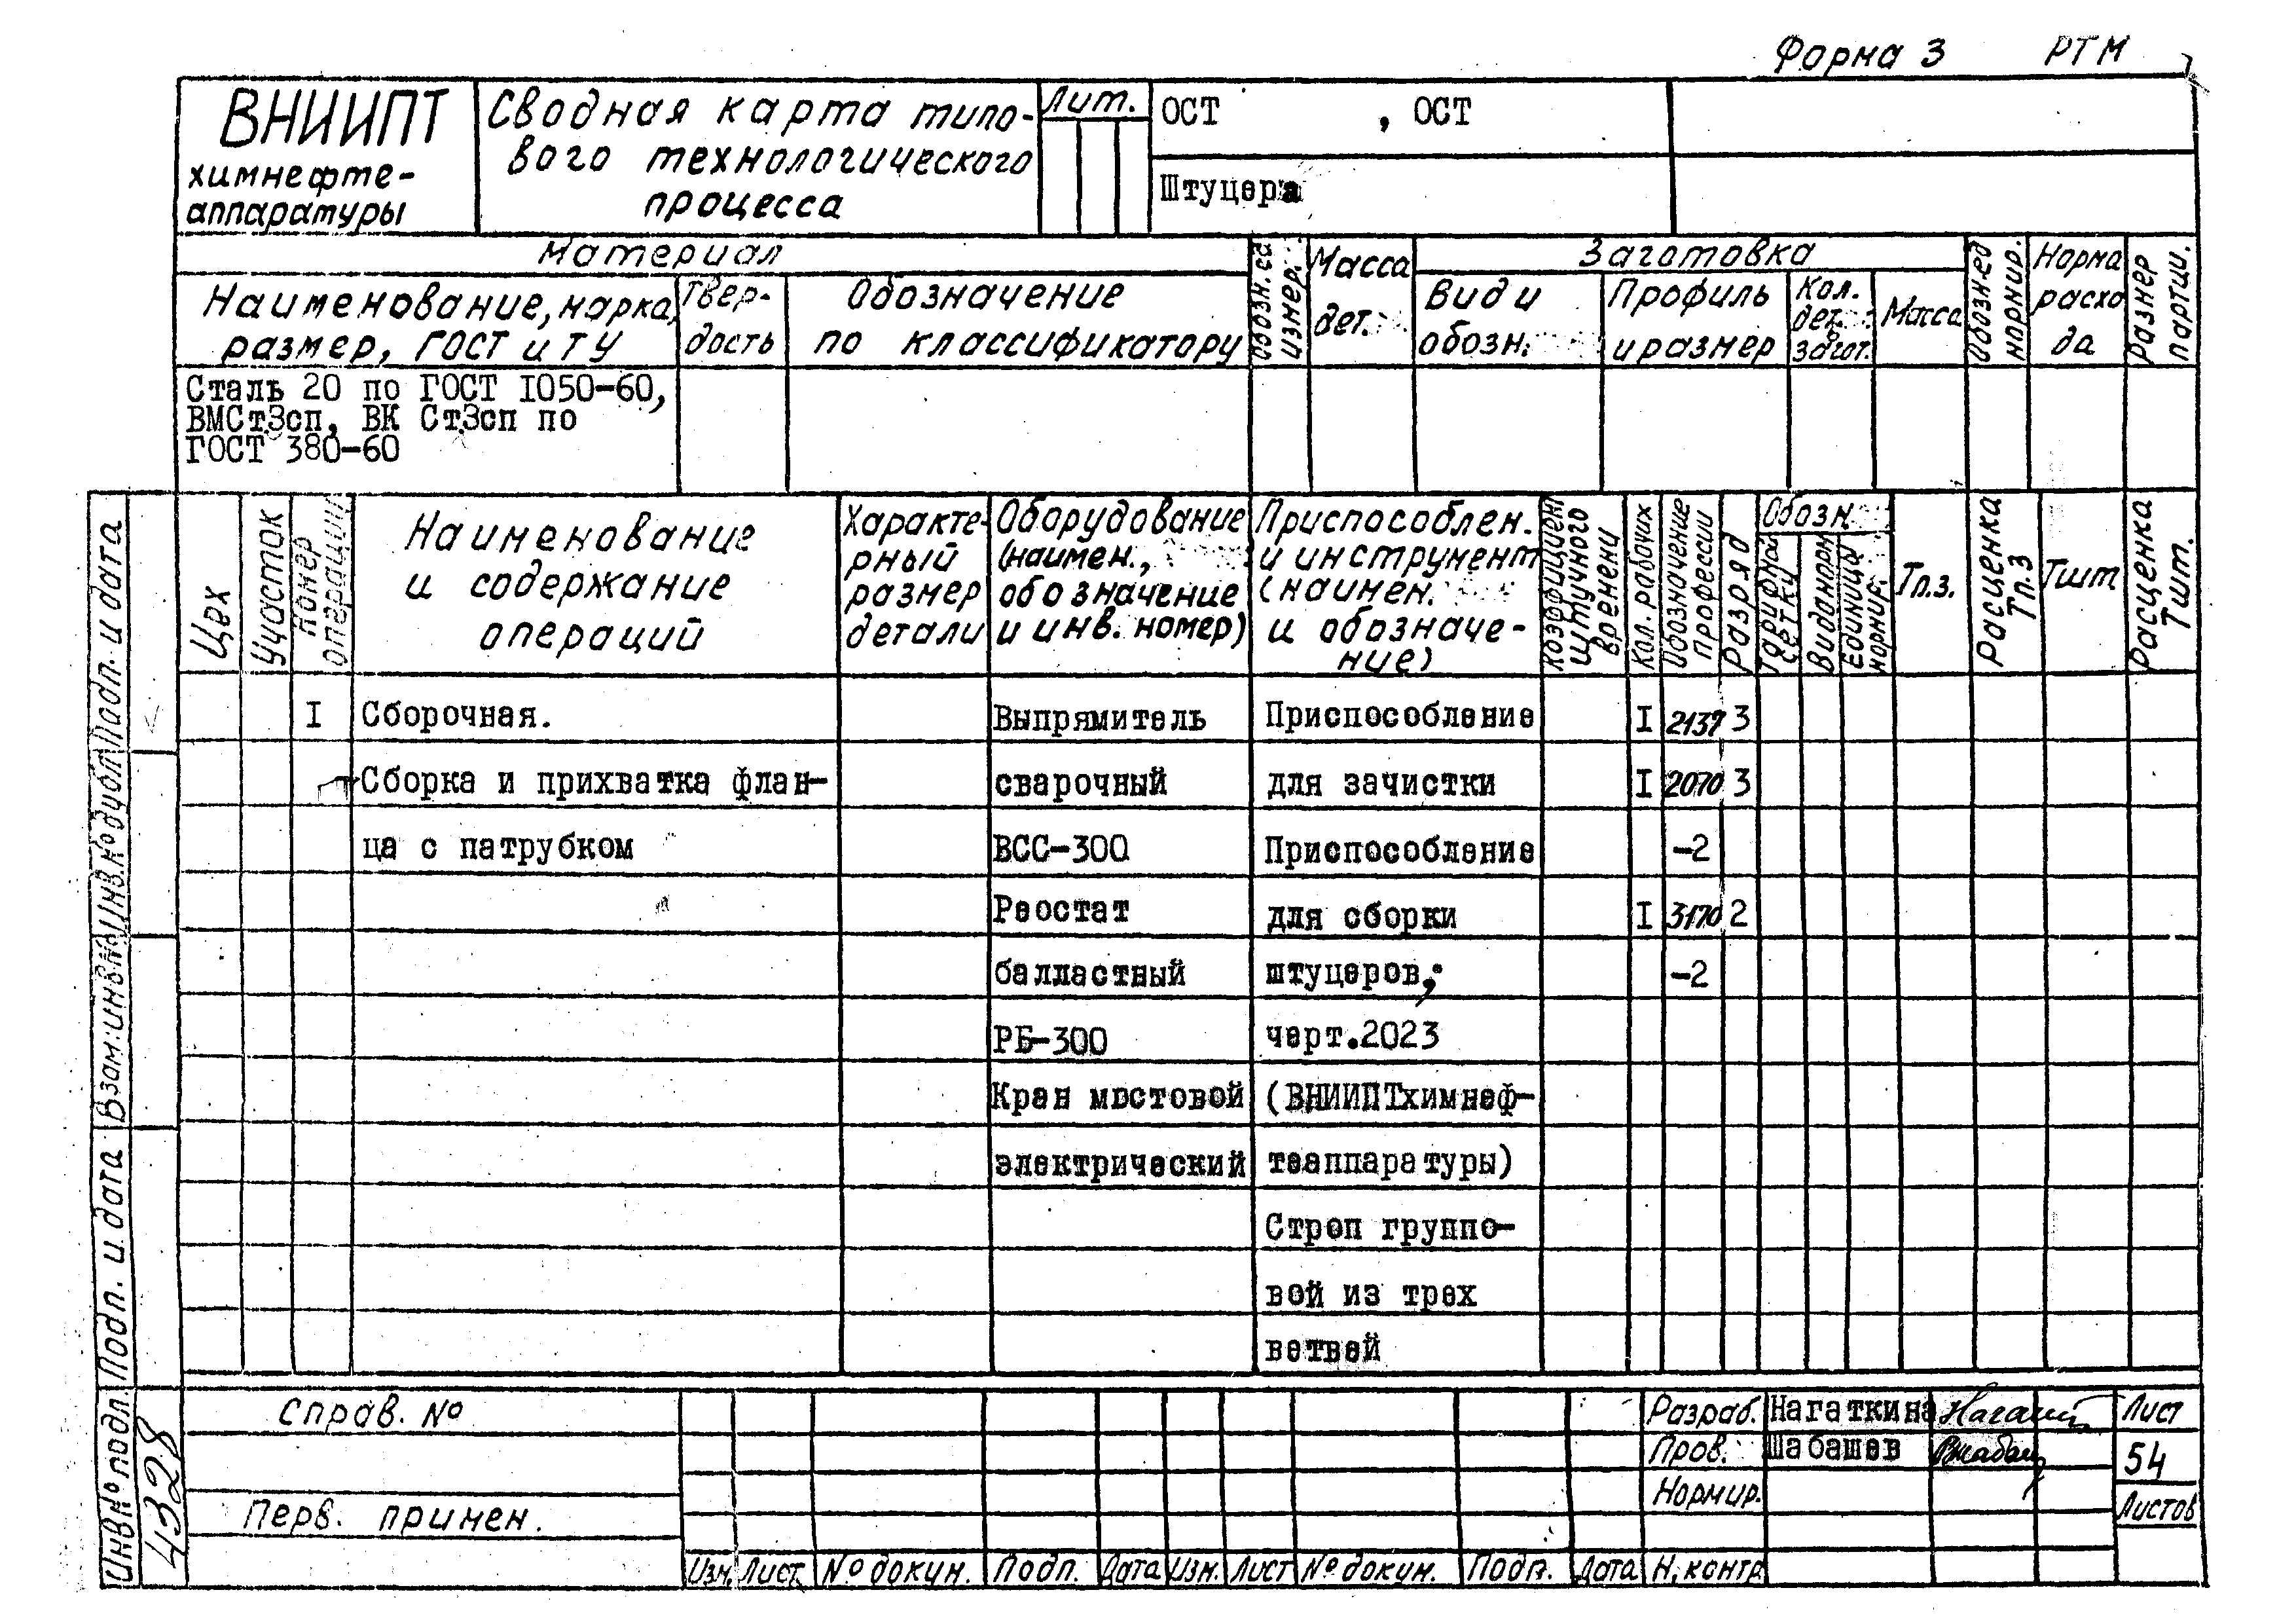 Форма 3 РТМ
ВНИИПТ
химнефте-
аппаратуры
Сводная карта типо-
вого технологического
процесса
Лит.
ОСТ , ОСТ
Штуцера
Материал
Наименование, марка,
размер, ГОСТ и ТУ
Твер-
дость
Обозначение
по классификатору
Масса
дет.
Заготовка
Вид и
обозн.
Профиль
и размер
Кол.
дет.
загот.
Масса
Обозн.ед
нормир.
Норма
расхо
да
Размер
партии.
Сталь 20 по ГОСТ I050-60,
ВМСт3сп, ВК Ст3сп по
ГОСТ 380-60
Цех
Участок
Номер
операции
Наименование
и содержание
операций
Характе-
рный
размер
детали
Оборудование
(наимен.,
обозначение
и инв. номер)
Приспособлен.
и инструмент
(наимен.
и обозначе-
ние)
Коэффициент
штучного
времени
Кол. рабочих
Обозначение
профессии
Разряд
Обозн.
Тарифной
сетки
Вида норм
Единицы
нормир.
Тп.з.
Расценка
Тп.з
Тшт.
Расценка
Тшт.
I Сборочная. Выпрямитель Приспособление I 2137 3
Сборка и прихватка флан- сварочный для зачистки I 2070 3
ца с патрубком ВСС-300 Приспособление -2
Реостат для сборки I 3170 2
балластный штуцеров, -2
РБ-300 черт.2023
Кран мостовой (ВНИИПТхимнеф-
электрический теаппаратуры)
Строп группо-
вой из трех
ветвей
Подп. и дата
Инв.№ дубл.
Взам.инв.№
Подп. и дата
Инв№ подл.
4328
Справ. №
Перв. примен.
Разраб. Нагаткина
Пров. Шабашев
Нормир.
Лист
54
Листов
Изм. Лист № докум. Подп. Дата Изм. Лист № докум. Подп. Дата Н. контр